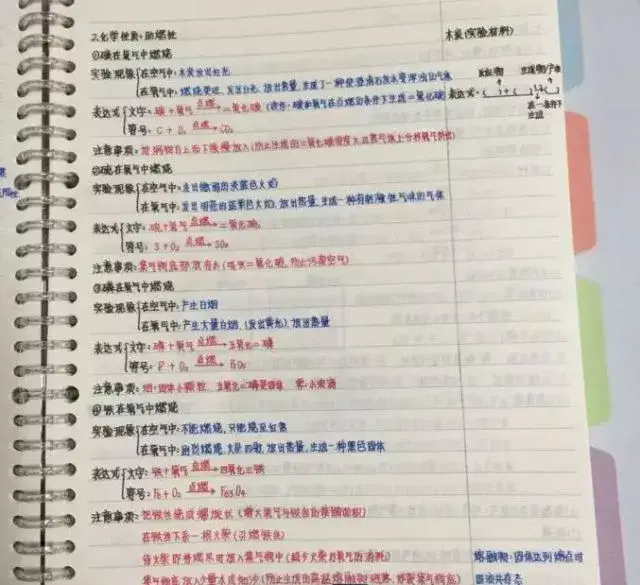 2.化学性质：助燃性
木炭(实验材料)
①碳在氧气中燃烧
实验现象{在空气中：木炭发出红光
在氧气中：燃烧更旺，发出白光，放出热量，生成了一种使澄清石灰水变浑浊的气体
反应物 生成物
表达式{文字：碳+氧气 点燃→ 二氧化碳 (读作：碳和氧气在点燃的条件下生成二氧化碳) 表达式：
符号：C + O₂ 点燃→ CO₂
在一条件下
生成
注意事项：
②硫在氧气中燃烧
实验现象{在空气中：发出微弱的淡蓝色火焰
在氧气中：发出明亮的蓝紫色火焰，放出热量，生成一种有刺激性气味的气体
表达式{文字：硫+氧气 点燃→ 二氧化硫
符号：S + O₂ 点燃→ SO₂
注意事项：集气瓶底部放有水(吸收二氧化硫，防止污染空气)
③磷在氧气中燃烧
实验现象{在空气中：产生白烟
在氧气中：产生大量白烟，(发出黄光)，放出热量
表达式{文字：磷+氧气 点燃→ 五氧化二磷
符号：P + O₂ 点燃→ P₂O₅
注意事项：烟：固体小颗粒 五氧化二磷是固体 雾：小液滴
④铁在氧气中燃烧
实验现象{在空气中：不能燃烧，只能烧至红热
在氧气中：剧烈燃烧，火星四射，放出热量，生成一种黑色固体
表达式{文字：铁+氧气 点燃→ 四氧化三铁
符号：Fe + O₂ 点燃→ Fe₃O₄
注意事项：把铁丝绕成螺旋状 (增大氧气与铁丝的接触面积)
在铁丝下系一根火柴 (引燃铁丝)
待火柴即将燃尽时放入集气瓶中 (减少火柴对氧气的消耗)
熔融物：固体达到熔点时
集气瓶底放入少量水或细沙 (防止生成的高温熔融物溅落，炸裂集气瓶底)
的液体存态